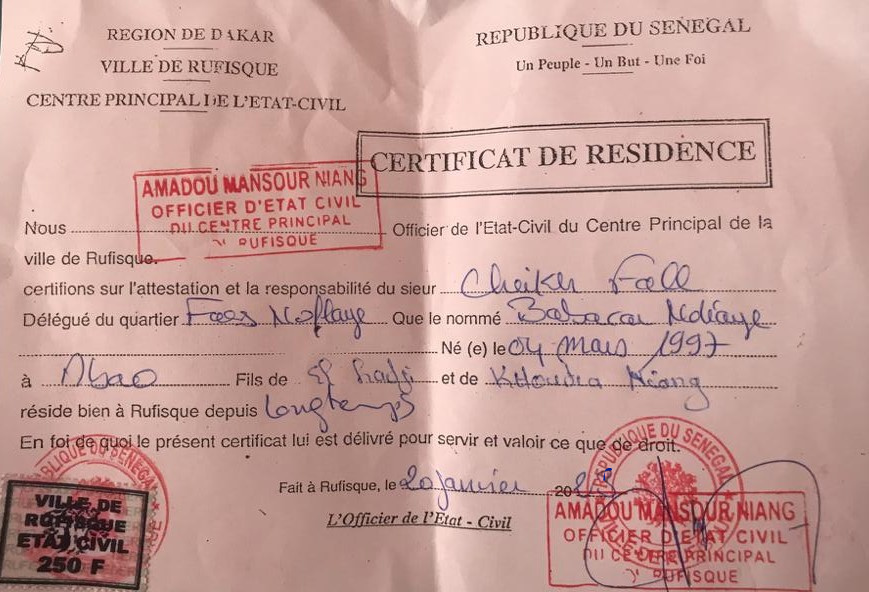 REGION DE DAKAR
VILLE DE RUFISQUE
CENTRE PRINCIPAL DE L'ETAT-CIVIL
REPUBLIQUE DU SENEGAL
Un Peuple - Un But - Une Foi
CERTIFICAT DE RESIDENCE
AMADOU MANSOUR NIANG
OFFICIER D'ETAT CIVIL
DU CENTRE PRINCIPAL
RUFISQUE
Nous ... Officier de l'Etat-Civil du Centre Principal de la
ville de Rufisque.
certifions sur l'attestation et la responsabilité du sieur Cheikh Fall
Délégué du quartier Fass Noflaye Que le nommé Babacar Ndiaye
Né (e) le 04 mars 1997
à Mbao Fils de El Hadji et de Khoudia Niang
réside bien à Rufisque depuis Longtemps
En foi de quoi le présent certificat lui est délivré pour servir et valoir ce que de droit.
Fait à Rufisque, le 20 janvier 20
L'Officier de l'Etat - Civil
REPUBLIQUE DU SENEGAL
VILLE DE
RUFISQUE
ETAT CIVIL
250 F
REPUBLIQUE DU SENEGAL
AMADOU MANSOUR NIANG
OFFICIER D'ETAT CIVIL
DU CENTRE PRINCIPAL
RUFISQUE